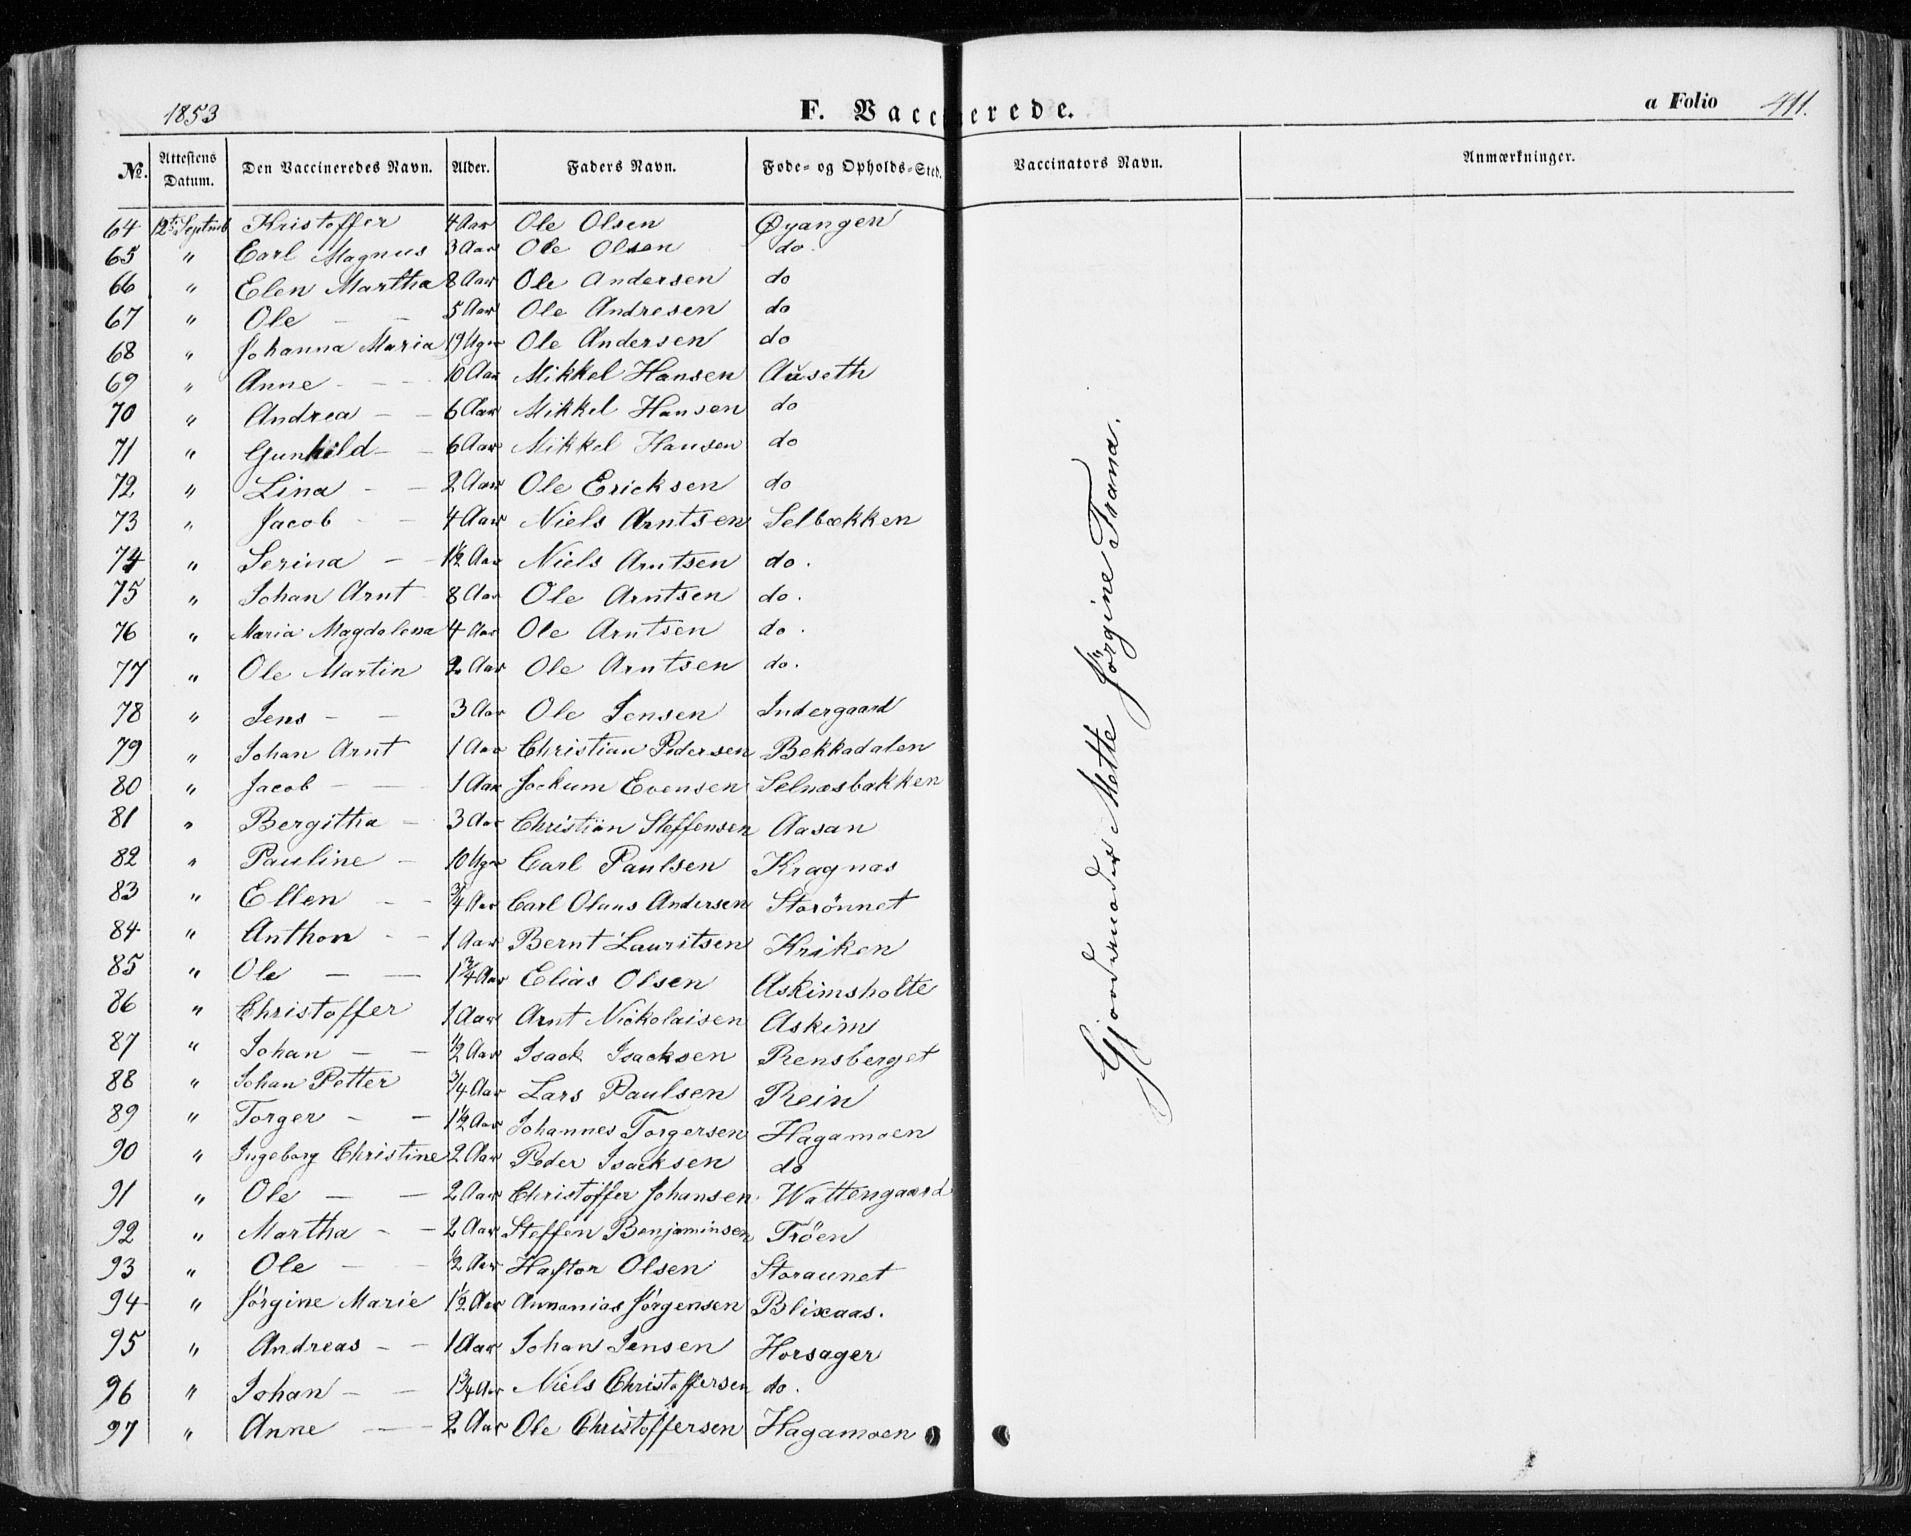 1853
F. Vaccinerede.
a Folio 411.
No. Attestens Datum. Den Vaccineredes Navn. Alder. Faders Navn. Føde- og Opholds-Sted. Vaccinators Navn. Anmærkninger.
64 12te Septmb Kristoffer 4 Aar Ole Olsen Øyangen
65 " Carl Magnus 3 Aar Ole Olsen do.
66 " Elen Martha 8 Aar Ole Andersen do
67 " Ole — — 5 Aar Ole Andresen do
68 " Johanna Maria 19 Uger Ole Andersen do
69 " Anne - - - 10 Aar Mikkel Hansen Aúseth
70 " Andrea — — 6 Aar Mikkel Hansen do
71 " Gunhild — - 6 Aar Mikkel Hansen do
72 " Lina — — 2 Aar Ole Ericksen do
73 " Jacob - - 4 Aar Niels Arntsen Selbækken
74 " Serina — — 1 1/2 Aar Niels Arntsen do.
75 " Johan Arnt 8 Aar Ole Arntsen do.
76 " Maria Magdalena 4 Aar Ole Arntsen do.
77 " Ole Martin 2 Aar Ole Arntsen do.
78 " Jens — — 3 Aar Ole Jensen Indergaard
79 " Johan Arnt 1 Aar Christian Pedersen Bekkadalen
80 " Jacob — — 1 Aar Jockum Evensen Selnæsbakken
81 " Bergitha — 3 Aar Christian Steffensen Aasan
82 " Pauline — 10 Uger Carl Paulsen Kragnæs
83 " Ellen — - 3/4 Aar Carl Olaus Andersen Storönnet
84 " Anthon - - 1 Aar Bernt Lauritsen Kriken
85 " Ole — — 1 3/4 Aar Elias Olsen Askimsholte
86 " Christoffer 1 Aar Arnt Nickolaisen Askim
87 " Johan — — 1/2 Aar Isack Isacksen Rensberget
88 " Johan Petter 3/4 Aar Lars Paulsen Rein
89 " Torger — — 1 1/2 Aar Johannes Torgersen Hagamoen
90 " Ingeborg Christine 2 Aar Peder Isacksen do
91 " Ole — — 2 Aar Christoffer Johansen Wattengaard
92 " Martha - — 2 Aar Steffen Benjaminsen Tröen
93 " Ole — - 1/2 Aar Haftor Olsen Storaunet
94 " Jörgine Marie 1 1/2 Aar Annanias Jörgensen Blixaas.
95 " Andreas - — 1 Aar Johan Jensen Horsager
96 " Johan — — 1 3/4 Aar Niels Christoffersen do.
97 " Anne — — 2 Aar Ole Christoffersen Hagamoen
Gjordemoder Mette Jörgine Trana.